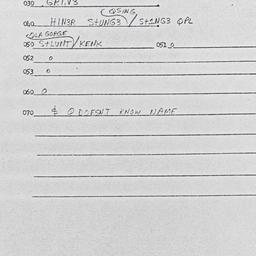 030 GRIV3
(QSING
040 HIN3R S+UNG3 / S+1NG3 OPL
QLA GORGE
050 S+LUNT / KENK 051 0
052 0
053 0
060 0
070 $ Q DOESNT KNOW NAME